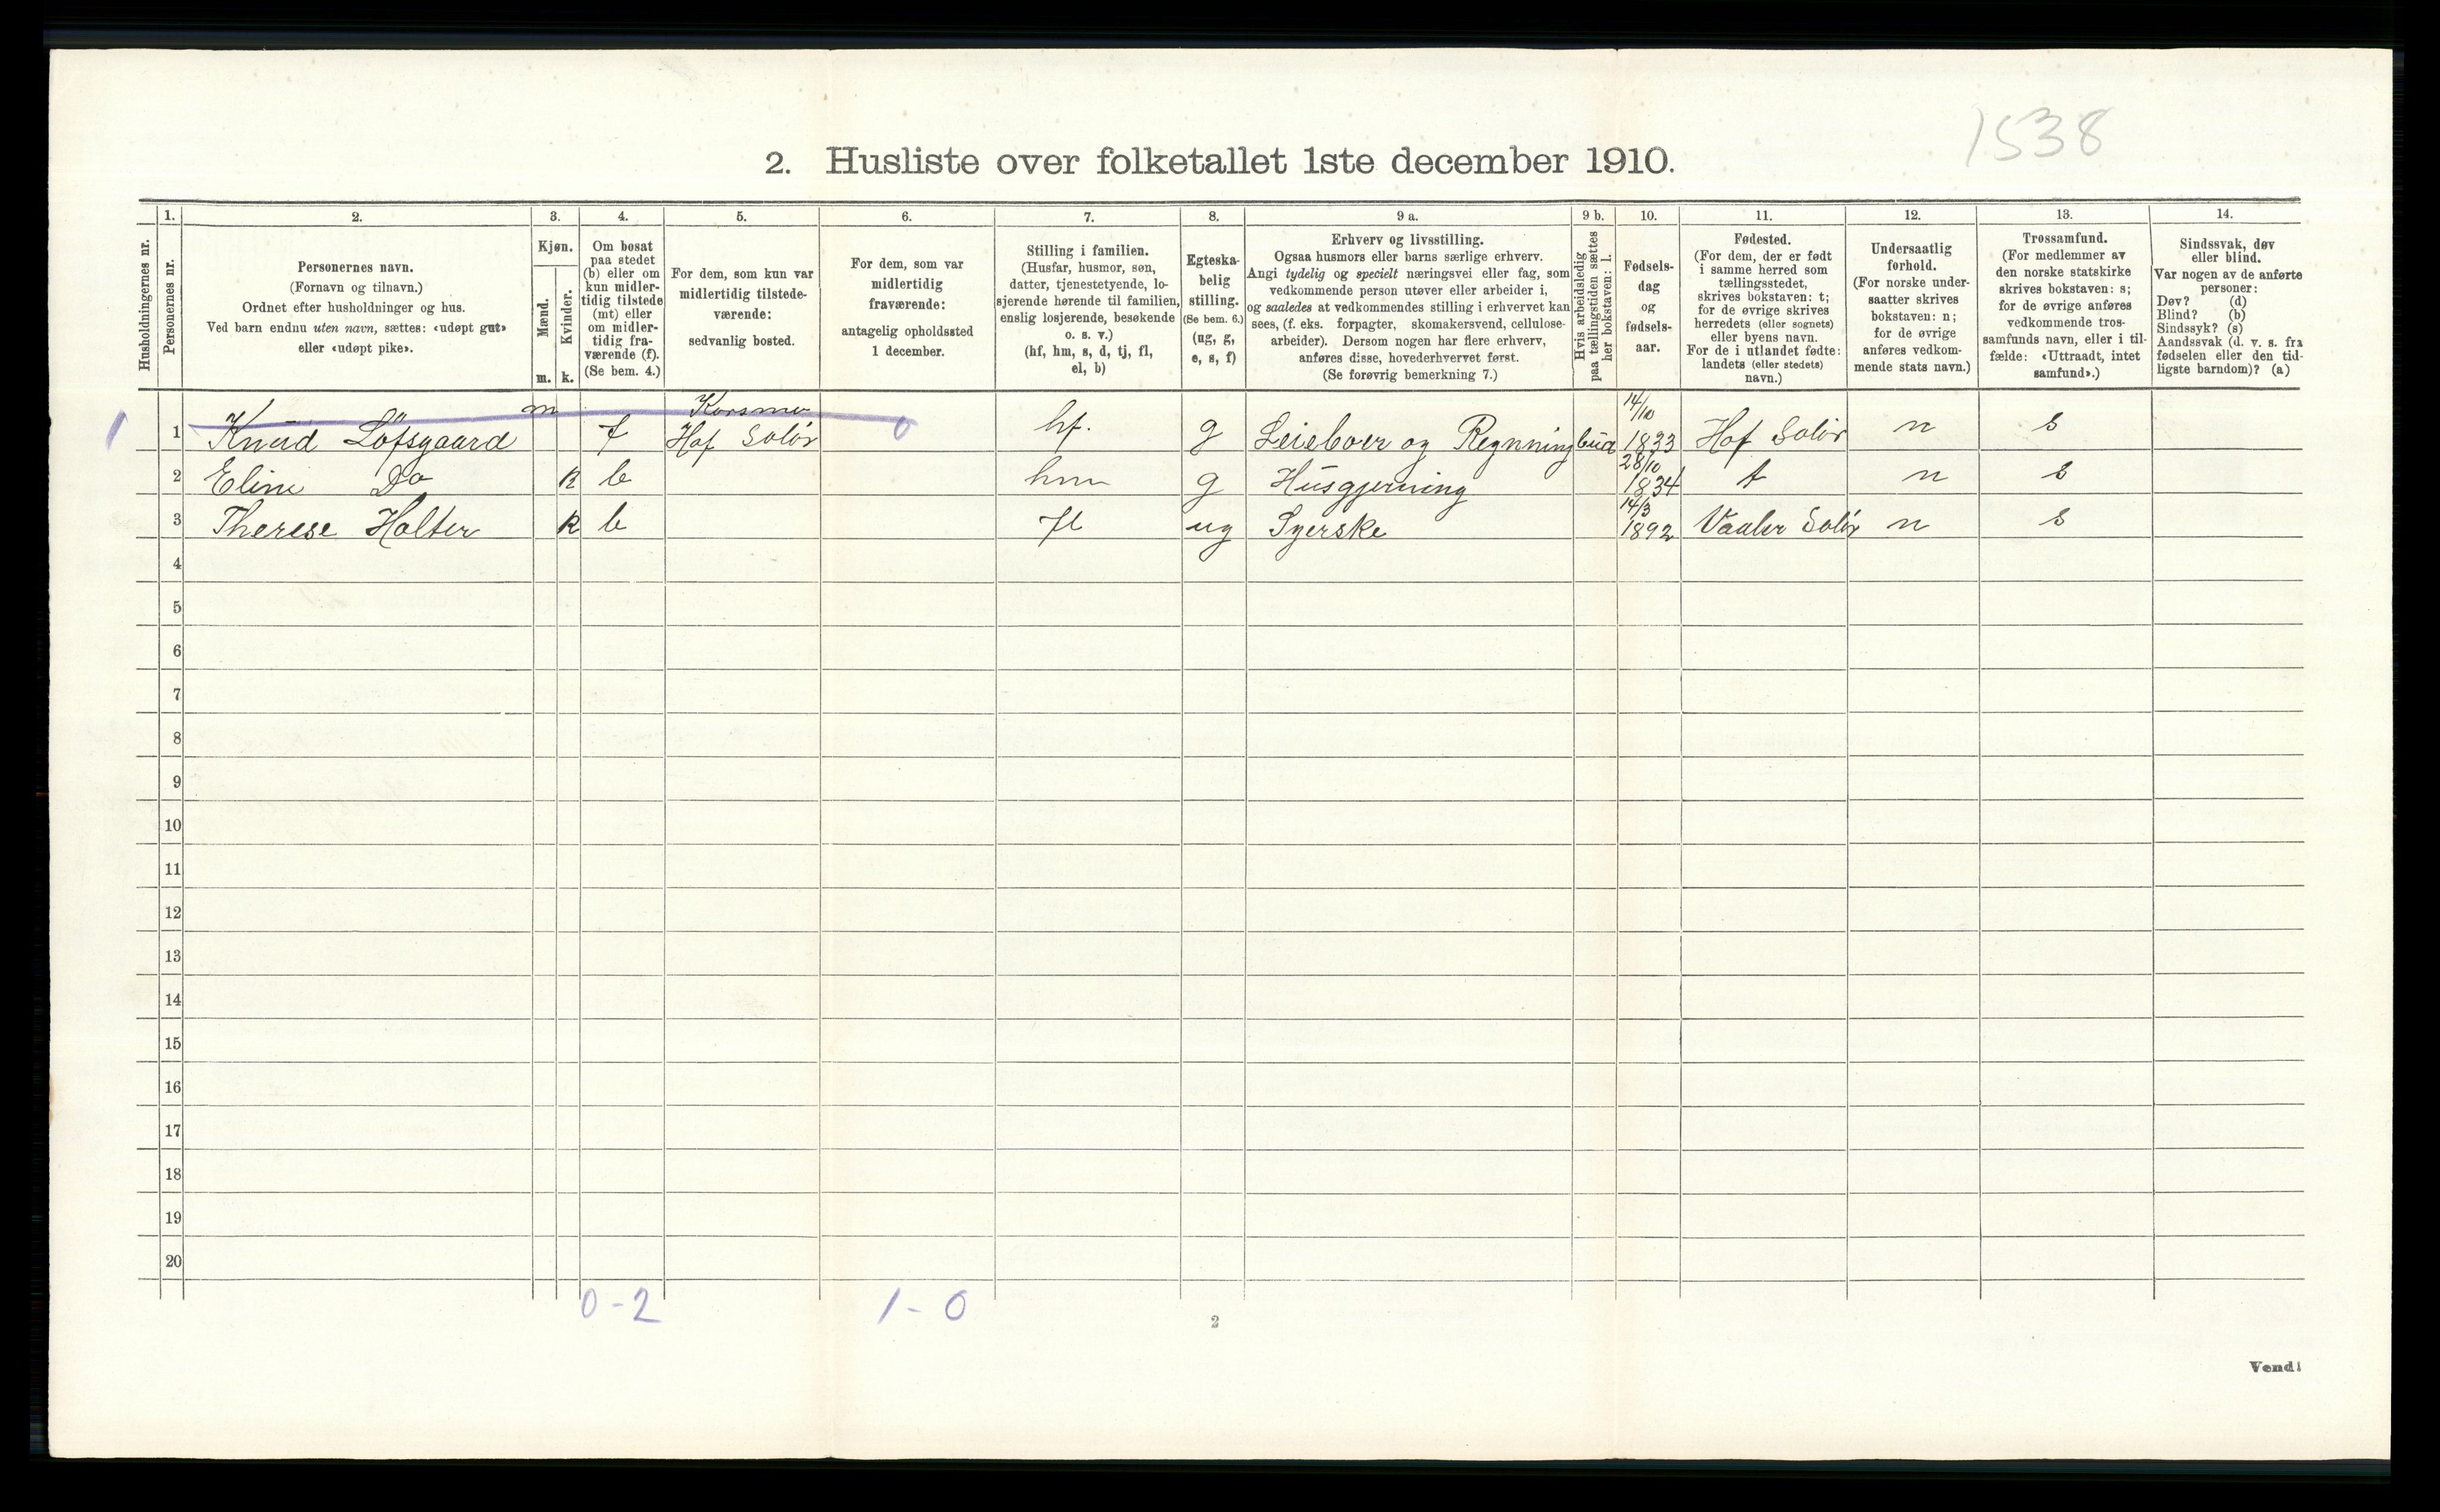 1538
2. Husliste over folketallet 1ste december 1910.
Husholdningernes nr.
1.
Personernes nr.
2.
Personernes navn.
(Fornavn og tilnavn.)
Ordnet efter husholdninger og hus.
Ved barn endnu uten navn, sættes: «udøpt gut»
eller «udøpt pike».
3.
Kjøn.
Mænd.
m.
Kvinder.
k.
4.
Om bosat
paa stedet
(b) eller om
kun midler-
tidig tilstede
(mt) eller
om midler-
tidig fra-
værende (f).
(Se bem. 4.)
5.
For dem, som kun var
midlertidig tilstede-
værende:
sedvanlig bosted.
6.
For dem, som var
midlertidig
fraværende:
antagelig opholdssted
1 december.
7.
Stilling i familien.
(Husfar, husmor, søn,
datter, tjenestetyende, lo-
sjerende hørende til familien,
enslig losjerende, besøkende
o. s. v.)
(hf, hm, s, d, tj, fl,
el, b)
8.
Egteska-
belig
stilling.
(Se bem. 6.)
(ug, g,
e, s, f)
9 a.
Erhverv og livsstilling.
Ogsaa husmors eller barns særlige erhverv.
Angi tydelig og specielt næringsvei eller fag, som
vedkommende person utøver eller arbeider i,
og saaledes at vedkommendes stilling i erhvervet kan
sees, (f. eks. forpagter, skomakersvend, cellulose-
arbeider). Dersom nogen har flere erhverv,
anføres disse, hovederhvervet først.
(Se forøvrig bemerkning 7.)
9 b.
Hvis arbeidsledig
paa tællingstiden sættes
her bokstaven: l.
10.
Fødsels-
dag
og
fødsels-
aar.
11.
Fødested.
(For dem, der er født
i samme herred som
tællingsstedet,
skrives bokstaven: t;
for de øvrige skrives
herredets (eller sognets)
eller byens navn.
For de i utlandet fødte:
landets (eller stedets)
navn.)
12.
Undersaatlig
forhold.
(For norske under-
saatter skrives
bokstaven: n;
for de øvrige
anføres vedkom-
mende stats navn.)
13.
Trossamfund.
(For medlemmer av
den norske statskirke
skrives bokstaven: s;
for de øvrige anføres
vedkommende tros-
samfunds navn, eller i til-
fælde: «Uttraadt, intet
samfund».)
14.
Sindssvak, døv
eller blind.
Var nogen av de anførte
personer:
Døv? (d)
Blind? (b)
Sindssyk? (s)
Aandssvak (d. v. s. fra
fødselen eller den tid-
ligste barndom)? (a)
m 14/10
1 1 Knud Löfsgaard f Hof Solör 0 hf. g Leieboer og 1833 Hof Solör n s
28/10
2 Eline Do k b hm g Husgjerning 1834 t n s
14/3
3 Therese Holter k b fl ug Syerske 1892 Vaaler Solör n s
4
5
6
7
8
9
10
11
12
13
14
15
16
17
18
19
20
0 - 2 1 - 0
2
Vend!